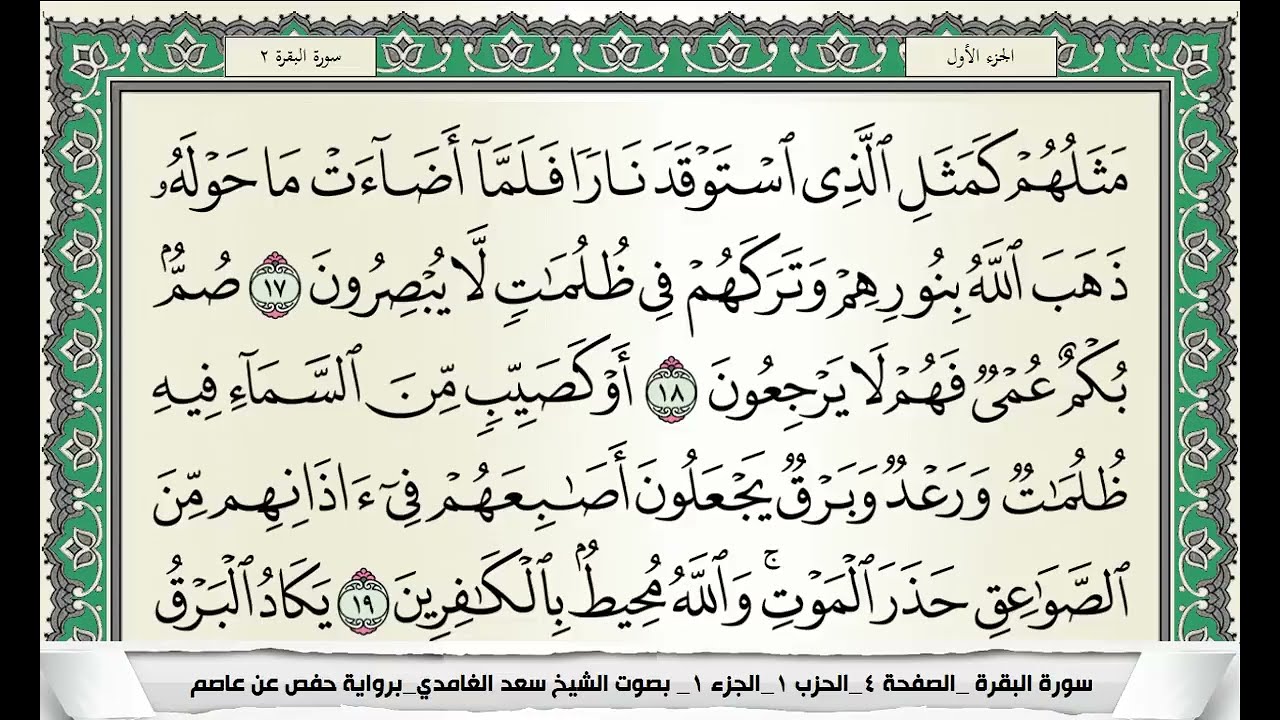 الجزء الأول
سورة البقرة ٢
مَثَلُهُمْ كَمَثَلِ ٱلَّذِى ٱسْتَوْقَدَ نَارًا فَلَمَّآ أَضَآءَتْ مَا حَوْلَهُۥ
ذَهَبَ ٱللَّهُ بِنُورِهِمْ وَتَرَكَهُمْ فِى ظُلُمَٰتٍ لَّا يُبْصِرُونَ ١٧ صُمٌّۢ
بُكْمٌ عُمْىٌ فَهُمْ لَا يَرْجِعُونَ ١٨ أَوْ كَصَيِّبٍ مِّنَ ٱلسَّمَآءِ فِيهِ
ظُلُمَٰتٌ وَرَعْدٌ وَبَرْقٌ يَجْعَلُونَ أَصَٰبِعَهُمْ فِىٓ ءَاذَانِهِم مِّنَ
ٱلصَّوَٰعِقِ حَذَرَ ٱلْمَوْتِ ۚ وَٱللَّهُ مُحِيطٌۢ بِٱلْكَٰفِرِينَ ١٩ يَكَادُ ٱلْبَرْقُ
سورة البقرة _الصفحة ٤_الحزب ١_الجزء ١_ بصوت الشيخ سعد الغامدي_برواية حفص عن عاصم